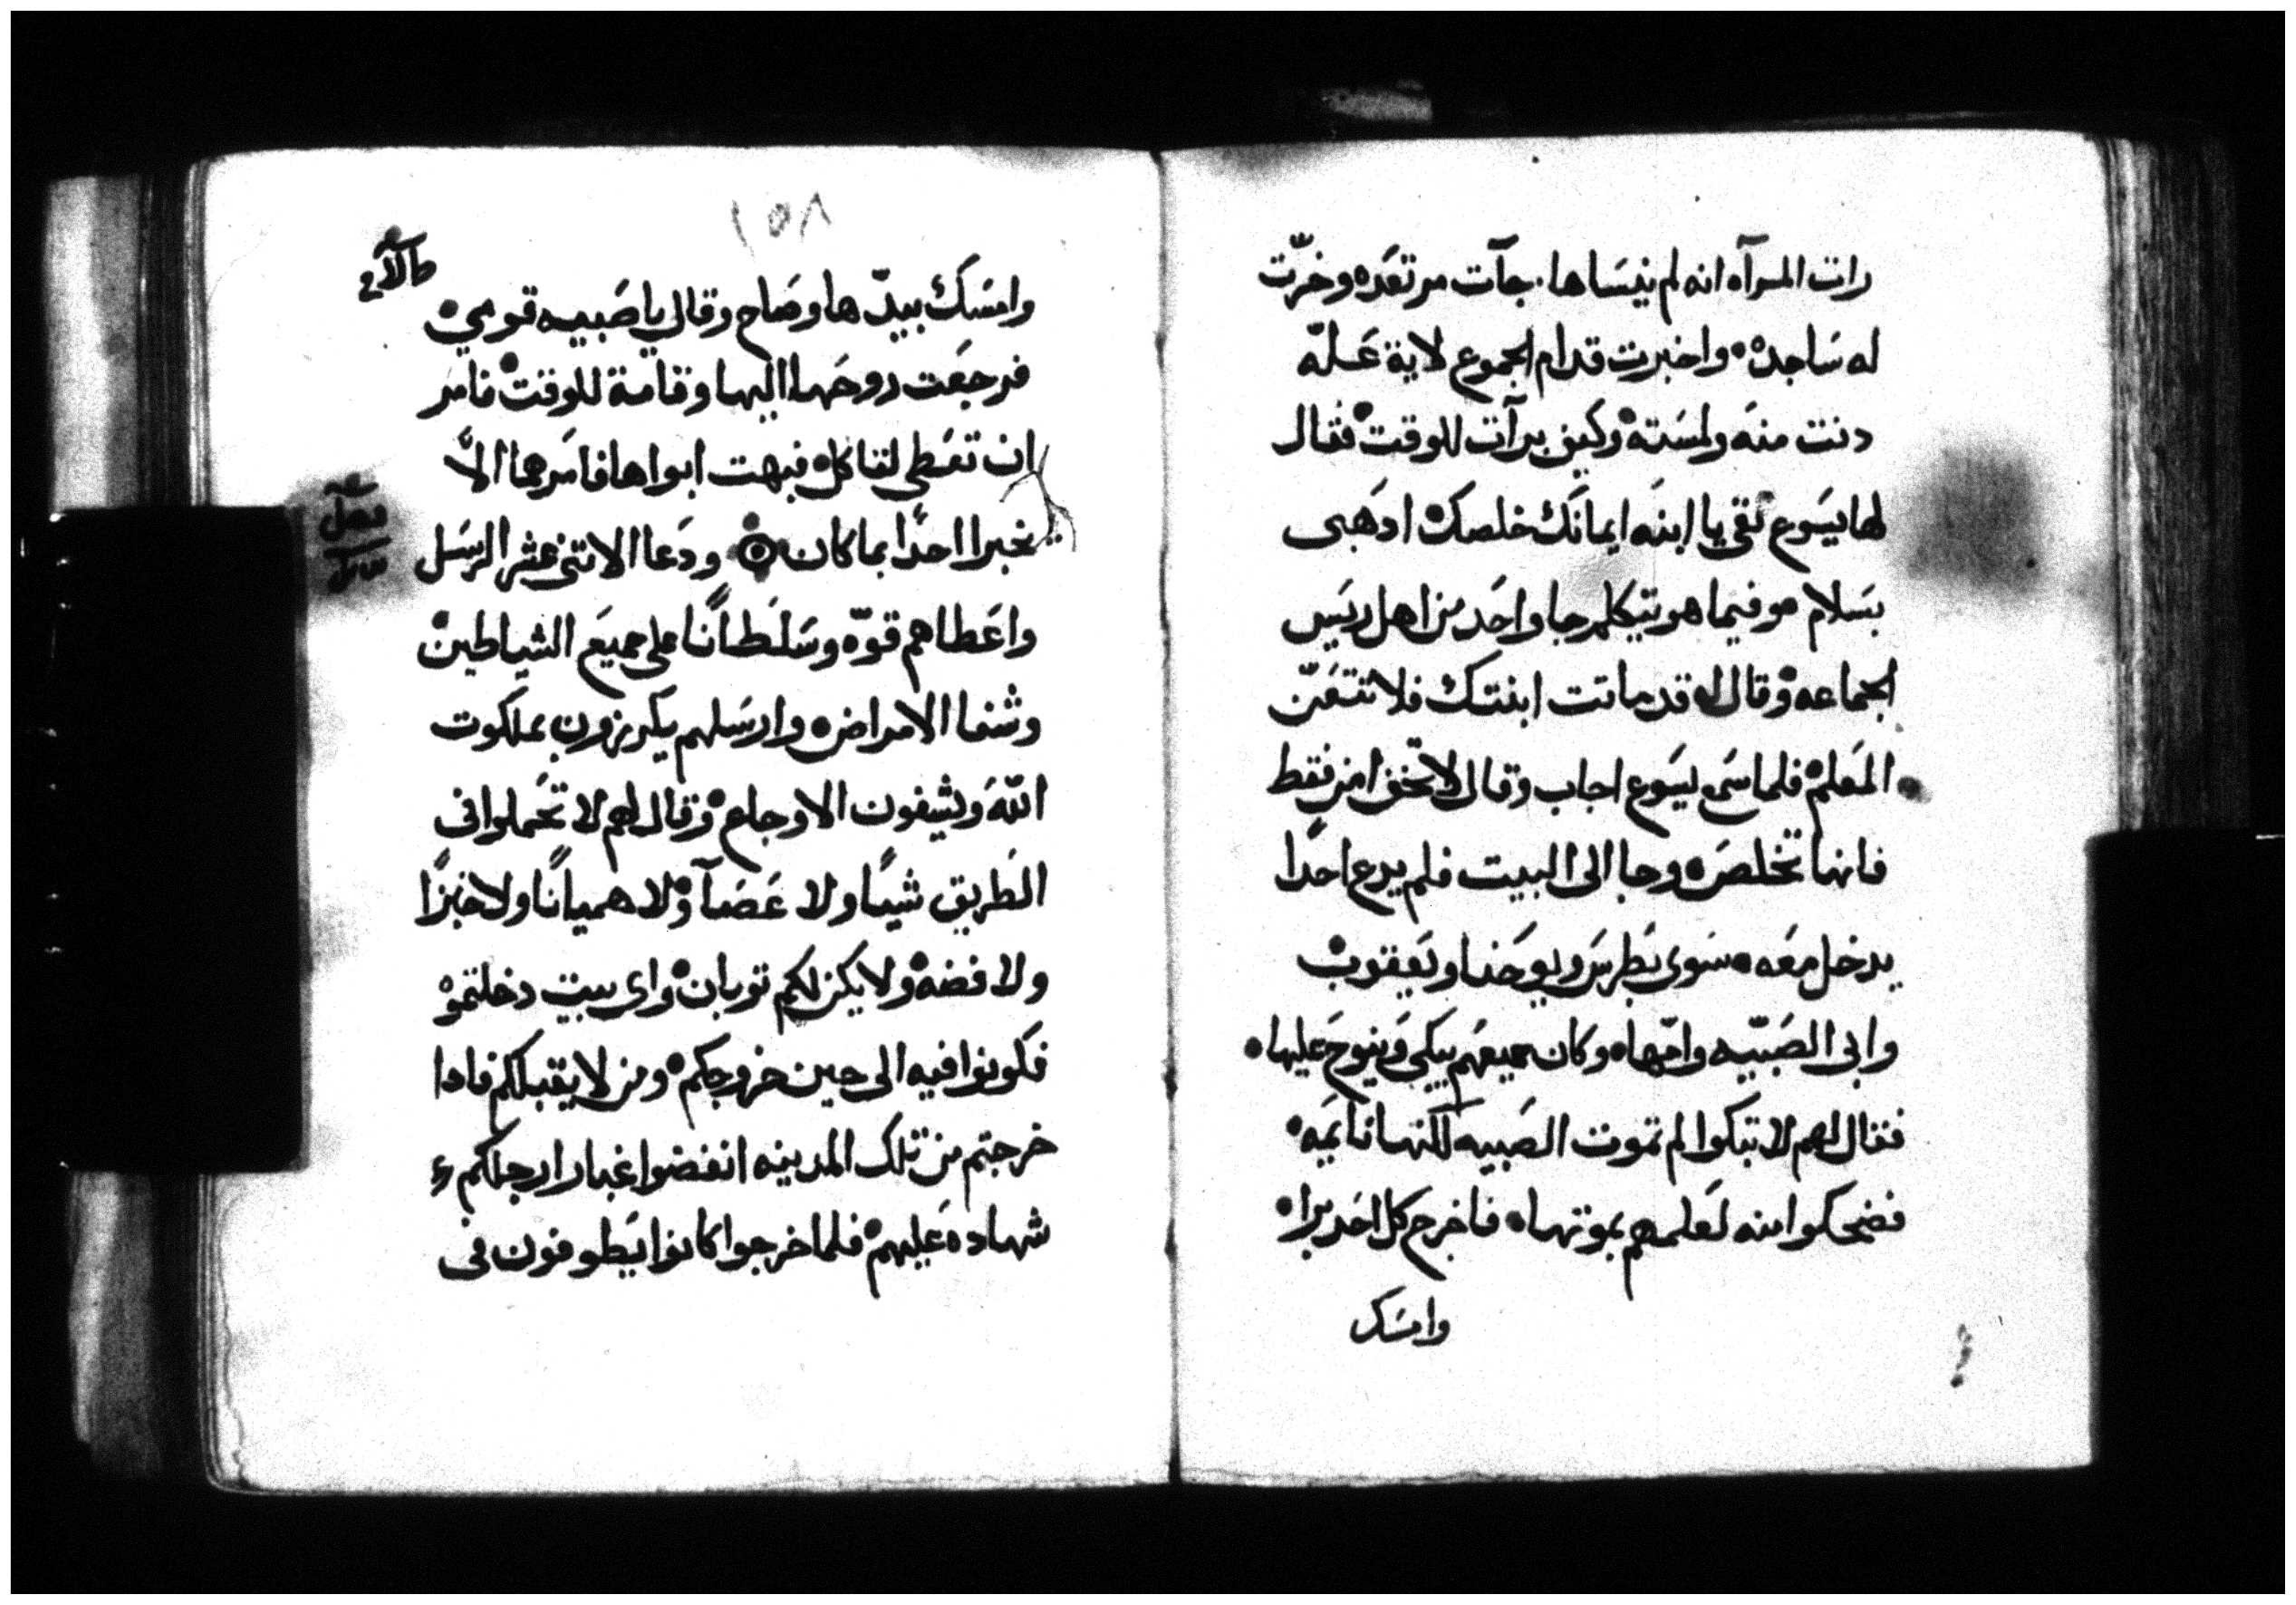 رات المرآه انه لم ينساها. جآت مرتعده وخرّت
له ساجده • واخبرت قدام الجموع لاية علّه
دنت منه ولمسته • وكيف برآت للوقت • فقال
لها يسوع ثقي يا ابنه ايمانك خلصك ادهبى
بسلام • وفيما هو يتكلم جا واحد من اهل رييس
الجماعه • وقال له قد ماتت ابنتك فلا تتعنّ
المعلم • فلما سمع يسوع اجاب وقال لا تخف امن فقط
فانها تخلص • وجا الى البيت فلم يدع احدًا
يدخل معه • سوى بطرس ويوحنا ويعقوب •
وابى الصبيّه وامّها • وكان جميعهم يبكى وينوح عليها •
فقال لهم لا تبكوا لم تموت الصبيه لكنها نايمه •
فضحكوا منه لعلمهم بموتها • فاخرج كل احد برا •
وامسك
١٥٨
وامسك بيدّها وصاح وقال يا صبييه قومي •
فرجعت روحها اليها وقامة للوقت • فامر
ان تعطي لتاكل • فبهت ابواها فامرهما الاّ
يخبرا احدًا بما كان ودعا الاتنى عشر الرسل
واعطاهم قوّه وسلطانًا على جميع الشياطين •
وشفا الامراض • وارسلهم يكرزون بملكوت
اللّه ويشفون الاوجاع • وقال لهم لا تحملوا فى
الطريق شيًا ولا عصآ • ولا هميانًا ولا خبزًا
ولا فضه • ولا يكن لكم توبان • واى بيت دخلتموْ
فكونوا فيه الى حين خروجكم • ومن لا يقبلكم فادا
خرجتم من تلك المدينه انفضوا غبار ارجلكم
شهاده عليهم • فلما خرجوا كانوا يطوفون فى